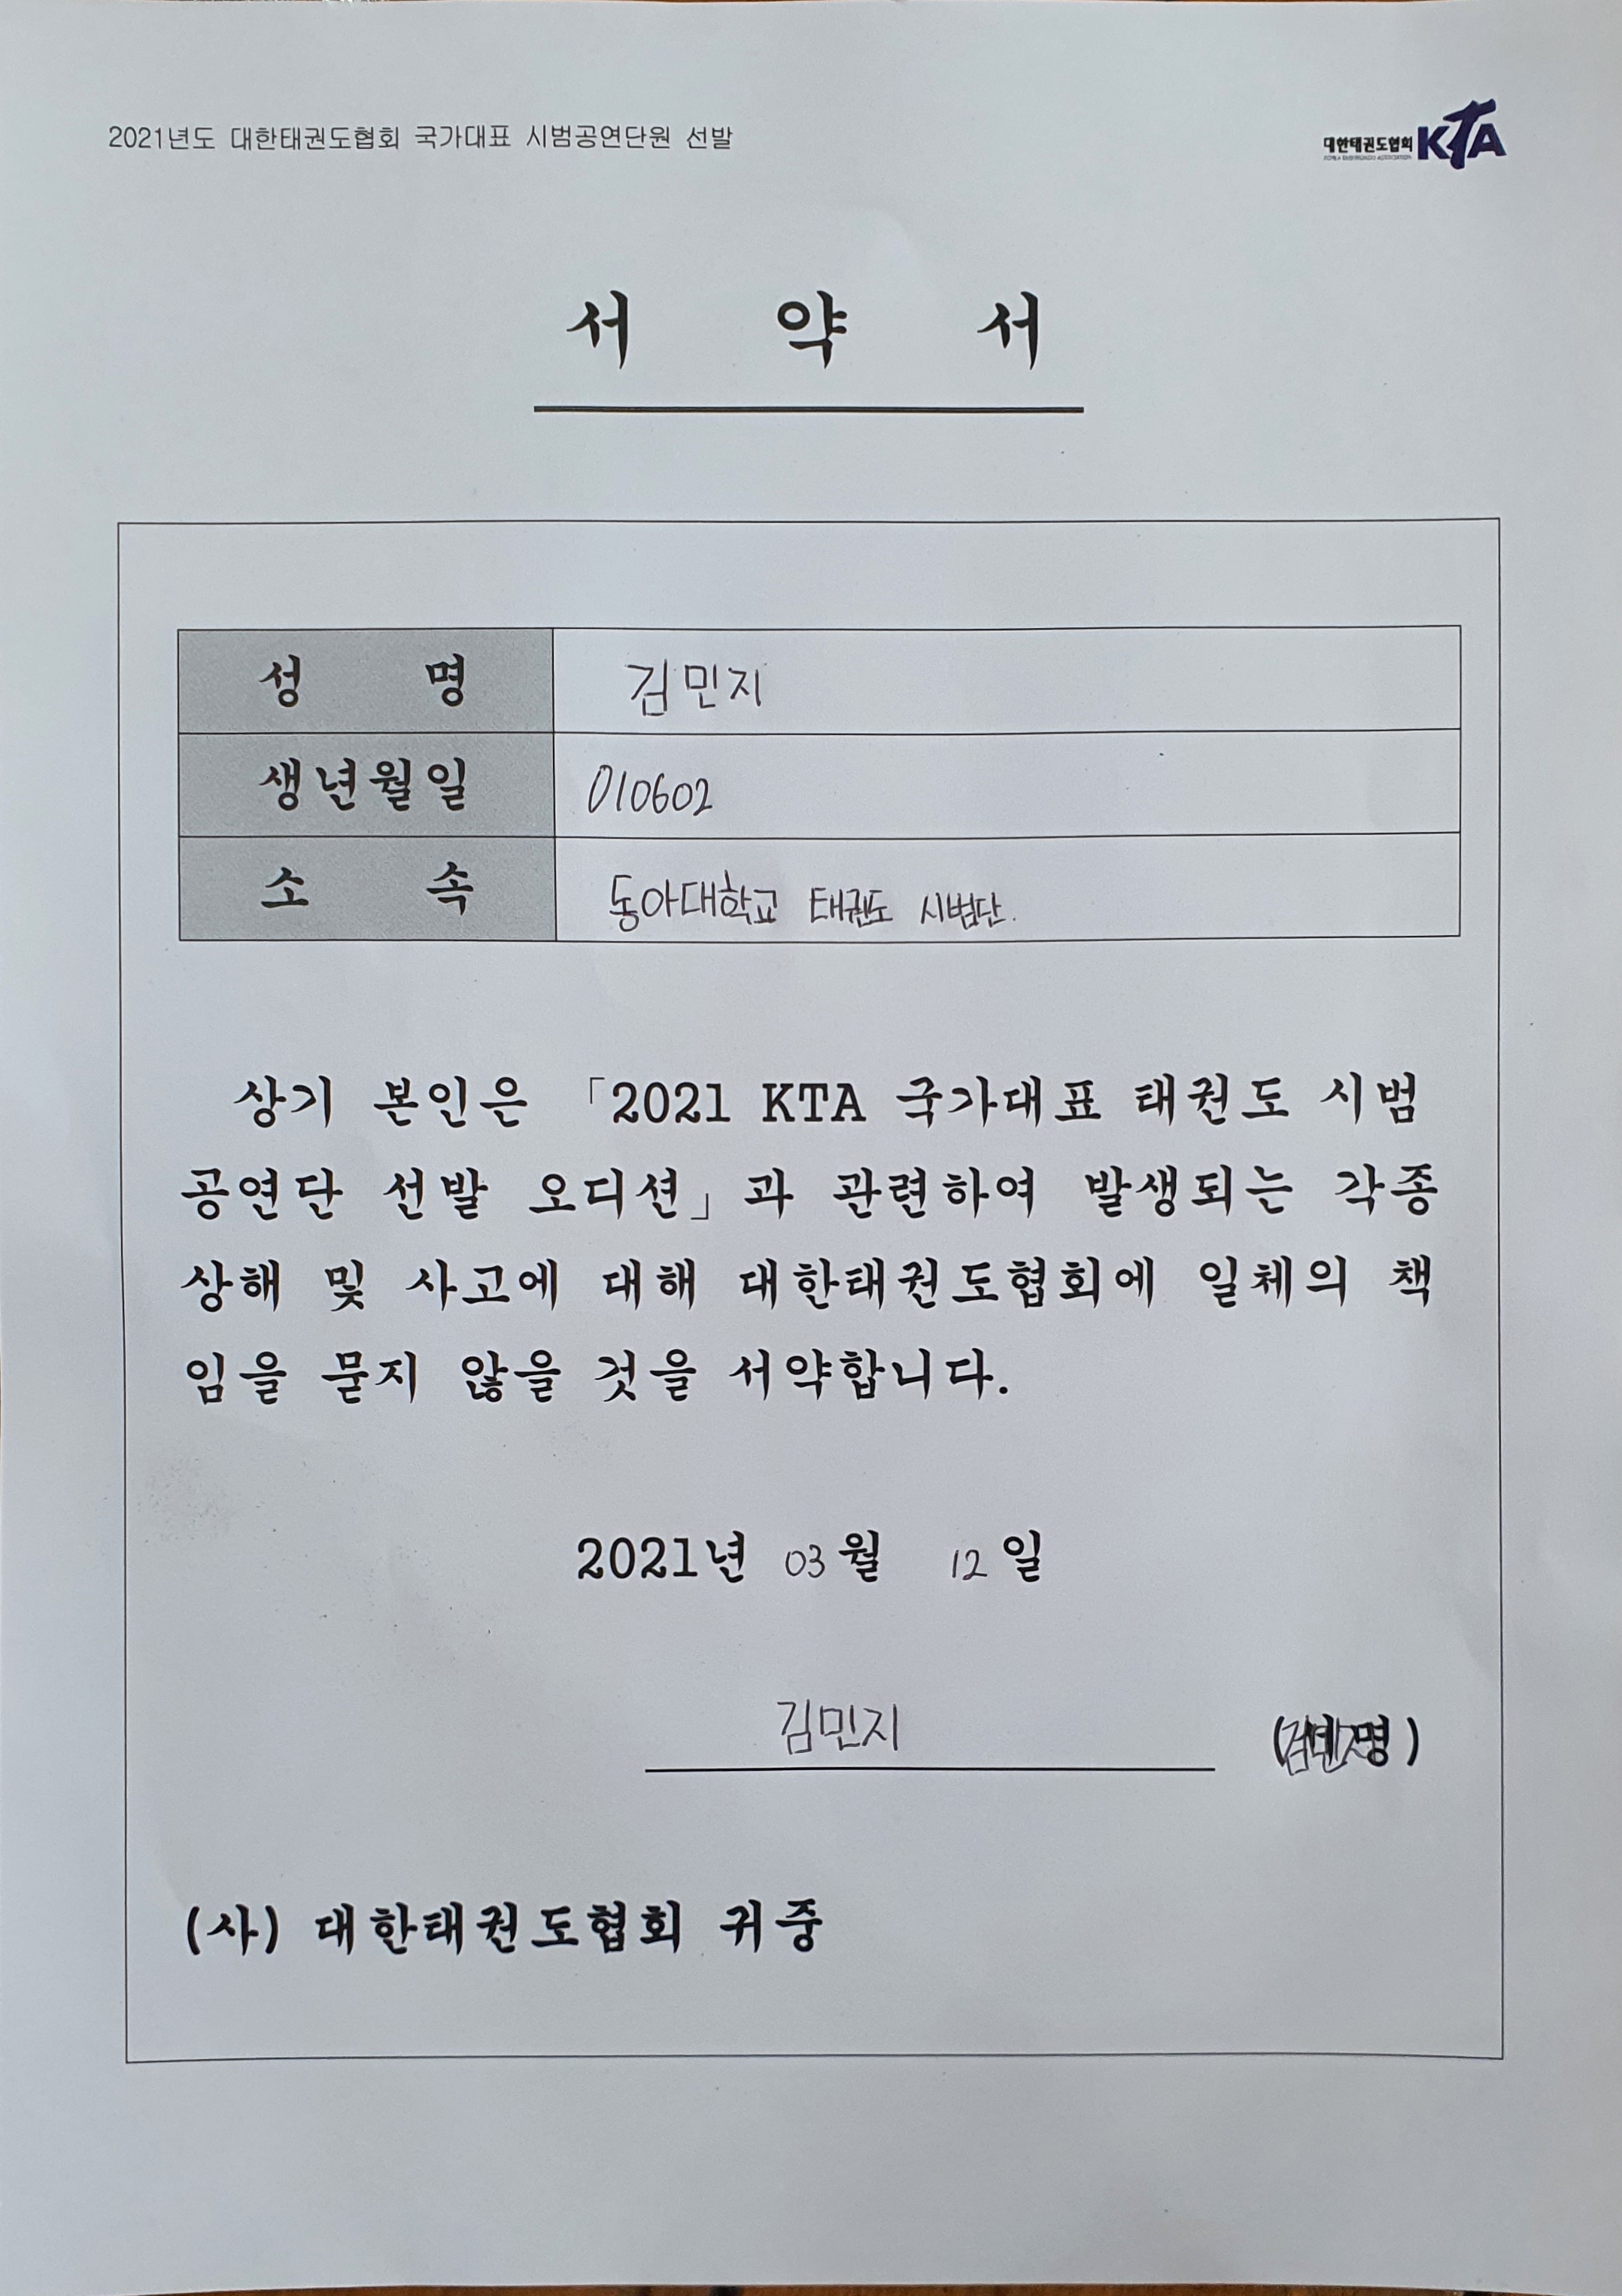 2021년도 대한태권도협회 국가대표 시범공연단원 선발
대한태권도협회 KTA
KOREA TAEKWONDO ASSOCIATION
서 약 서
성 명 김민지
생년월일 010602
소 속 동아대학교 태권도 시범단.
상기 본인은 「2021 KTA 국가대표 태권도 시범
공연단 선발 오디션」과 관련하여 발생되는 각종
상해 및 사고에 대해 대한태권도협회에 일체의 책
임을 묻지 않을 것을 서약합니다.
2021년 03월 12일
김민지 (서명)
(사) 대한태권도협회 귀중